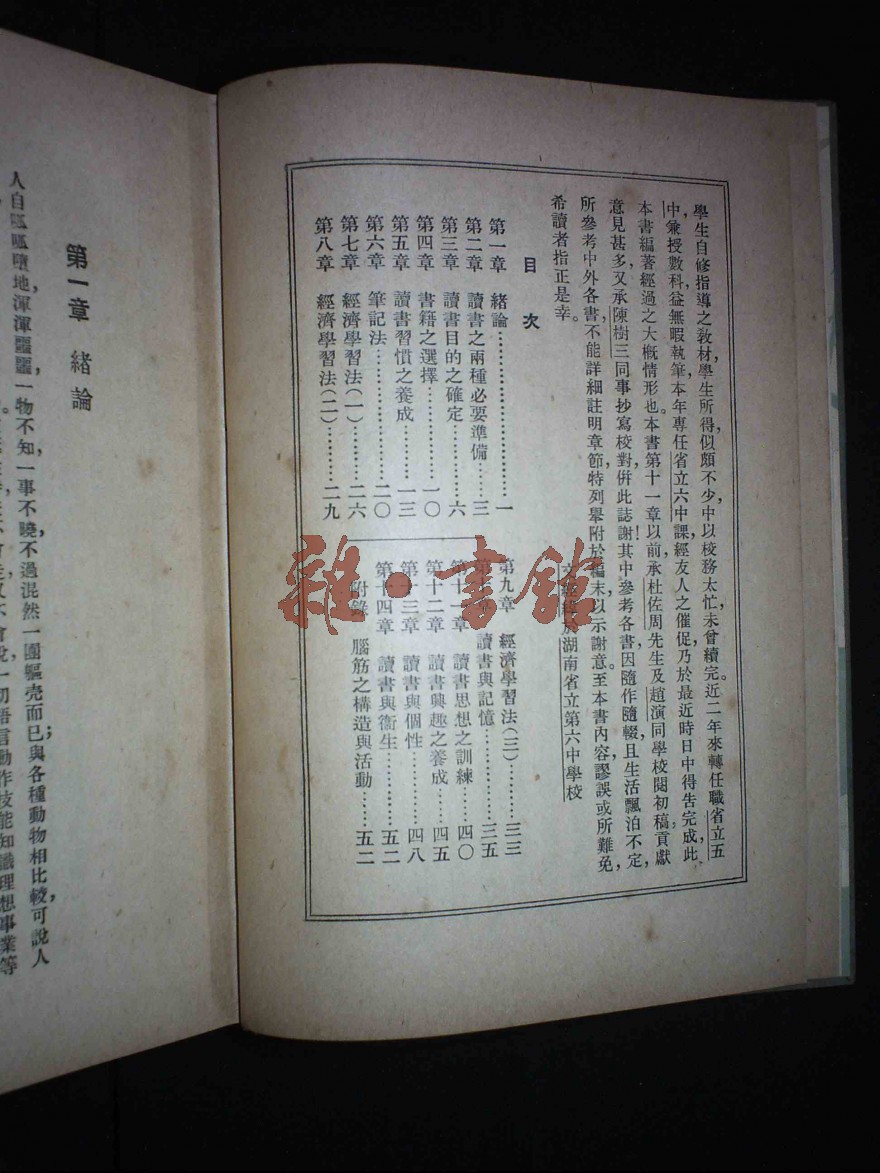 學生自修指導之敎材,學生所得,似頗不少,中以校務太忙,未曾續完。近二年來轉任職省立五
中,兼授數科,益無暇執筆,本年專任省立六中課,經友人之催促,乃於最近時日中得告完成,此
本書編著經過之大概情形也。本書第十一章以前,承杜佐周先生及趙演同學校閱初稿,貢獻
意見甚多,又承陳樹三同事抄寫校對,併此誌謝!其中參考各書,因隨作隨輟,且生活飄泊不定,
所參考中外各書,不能詳細註明章節,特列舉附於編末,以示謝意。至本書內容,謬誤或所難免,
希讀者指正是幸。
於湖南省立第六中學校
目次
第一章 緒論……………………一
第二章 讀書之兩種必要準備……三
第三章 讀書目的之確定…………六
第四章 書籍之選擇………………一〇
第五章 讀書習慣之養成…………一三
第六章 筆記法……………………二〇
第七章 經濟學習法(一)…………二六
第八章 經濟學習法(二)…………二九
第九章 經濟學習法(三)…………三三
第十章 讀書與記憶………………三五
第十一章 讀書思想之訓練………四〇
第十二章 讀書興趣之養成………四五
第十三章 讀書與個性……………四八
第十四章 讀書與衞生……………五二
附錄 腦筋之構造與活動…………五二
雜·書館
第一章 緒論
人自呱呱墮地,渾渾噩噩,一物不知,一事不曉,不過混然一團軀壳而已;與各種動物相比較,可說人
一切語言動作技能知識理想事業等